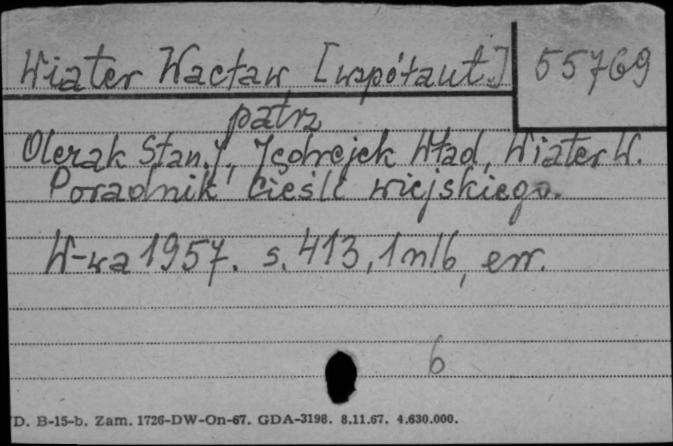 Wiater Wacław [współaut.] 55769
patrz
Olerak Stan. J., Jędrejek Wład, Wiater W.
Poradnik cieśli wiejskiego.
W-wa 1957. s. 413, 1 nlb, err.
6
D. B-15-b. Zam. 1726-DW-On-67. GDA-3198. 8.11.67. 4.630.000.